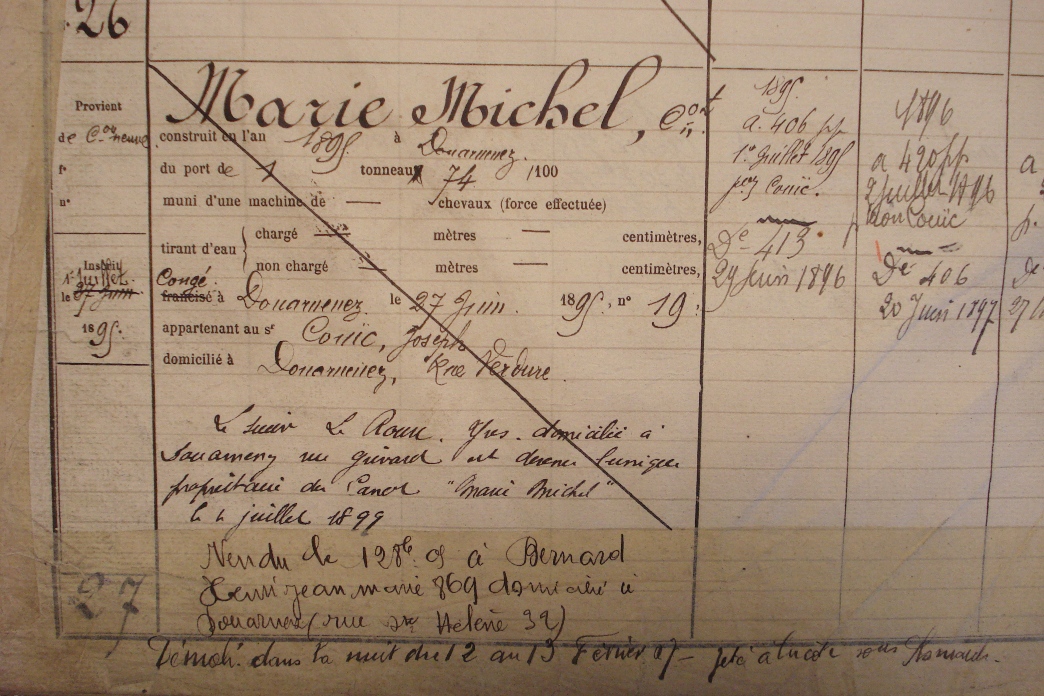 26
Marie Michel, Cot
Provient
de Con neuve
construit en l'an 1895 à Douarnenez.
fo
du port de 1 tonneaux 74 /100
no
muni d'une machine de — chevaux (force effectuée)
tirant d'eau
chargé — mètres — centimètres,
non chargé — mètres — centimètres,
Inscrit
1er Juillet
le 27 Juin
1895.
Congé
francisé à Douarnenez le 27 Juin 1895, no 19.
appartenant au sr Couïc, Joseph
domicilié à Douarnenez, Rue Verdure.
Le sieur Le Roux. Yves. domicilié à
Douarnenez rue est devenu l'unique
propriétaire du Canot "Marie Michel"
le juillet 1899
Vendu le à Bernard
Henri jean marie 869 domicilié à
Douarnez (rue Ste Hélène 32)
27
Démoli dans la nuit du 12 au 13 Février 07 — jeté à la côte sous
1895.
a. 406 pp
1er Juillet 1895
pon Couïc.
De 413
29 Juin 1896
1896
a 420 pp
2 Juillet 1896
Couïc
De 406
20 Juin 1897
a
p.
De
27